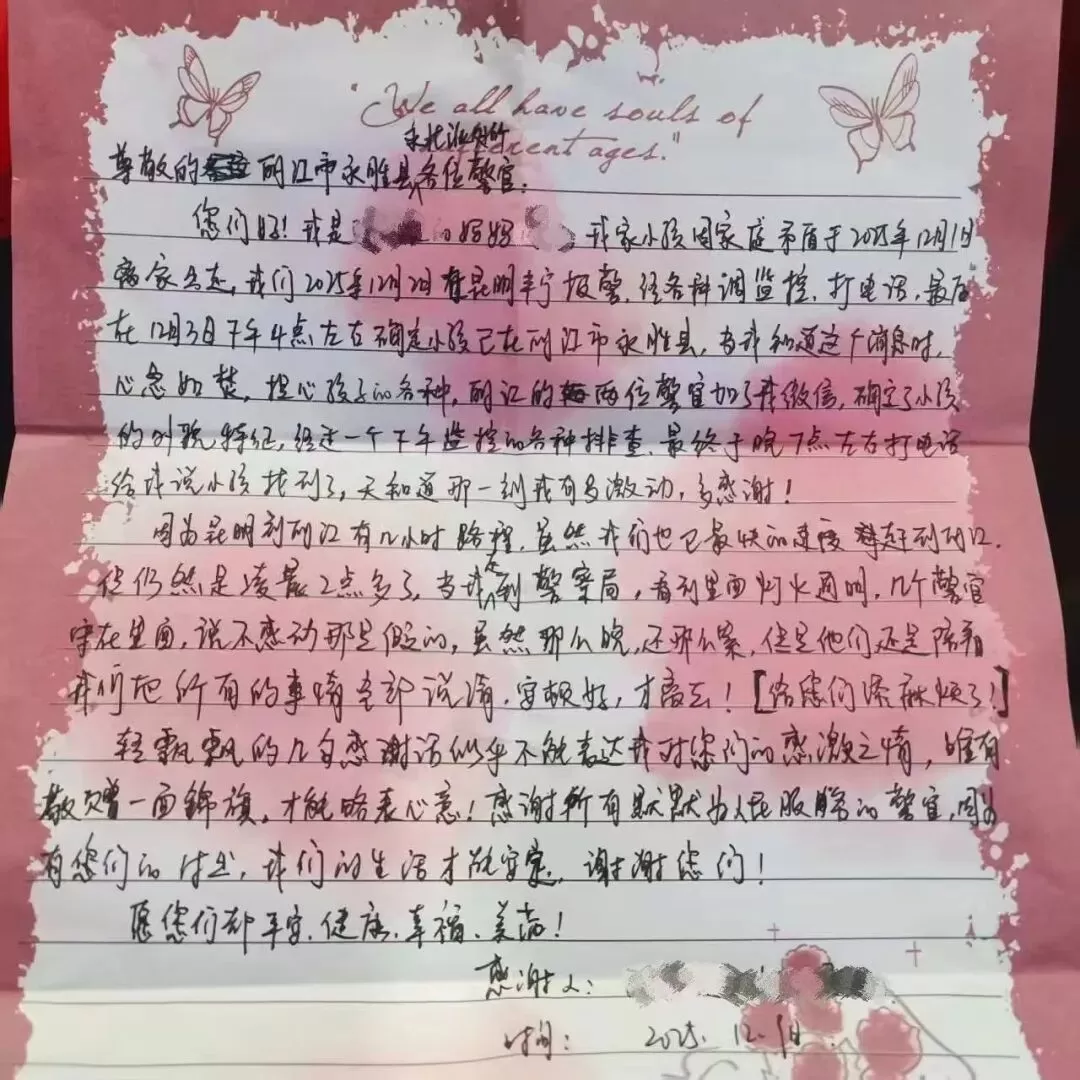 "We all have souls of
different ages."
永北派出所
尊敬的丽江市永胜县各位警官:
您们好!我是的妈妈,我家小孩因家庭矛盾于2025年12月1日
离家出走,我们2025年12月2日在昆明丰宁报警,经各种调监控、打电话,最后
在12月3日下午4点左右确定小孩已在丽江市永胜县,当我知道这个消息时,
心急如焚,担心孩子的各种,丽江的两位警官加了我微信,确定了小孩
的外貌特征,经过一个下午监控的各种排查,最终于晚7点左右打电话
给我说小孩找到了,天知道那一刻我有多激动,多感谢!
因为昆明到丽江有几小时路程,虽然我们也已最快的速度赶到丽江,
但仍然是凌晨2点多了,当我走到警察局,看到里面灯火通明,几个警官
守在里面,说不感动那是假的,虽然那么晚,还那么累,但是他们还是陪着
我们把所有的事情全部说清,安顿好,才离去![给您们添麻烦了!]
轻飘飘的几句感谢话似乎不能表达我对您们的感激之情,唯有
敬赠一面锦旗,才能略表心意!感谢所有默默为人民服务的警官,因为
有您们的付出,我们的生活才能安定,谢谢您们!
愿您们都平安、健康、幸福、美满!
感谢人:
时间: 2025.12.9日